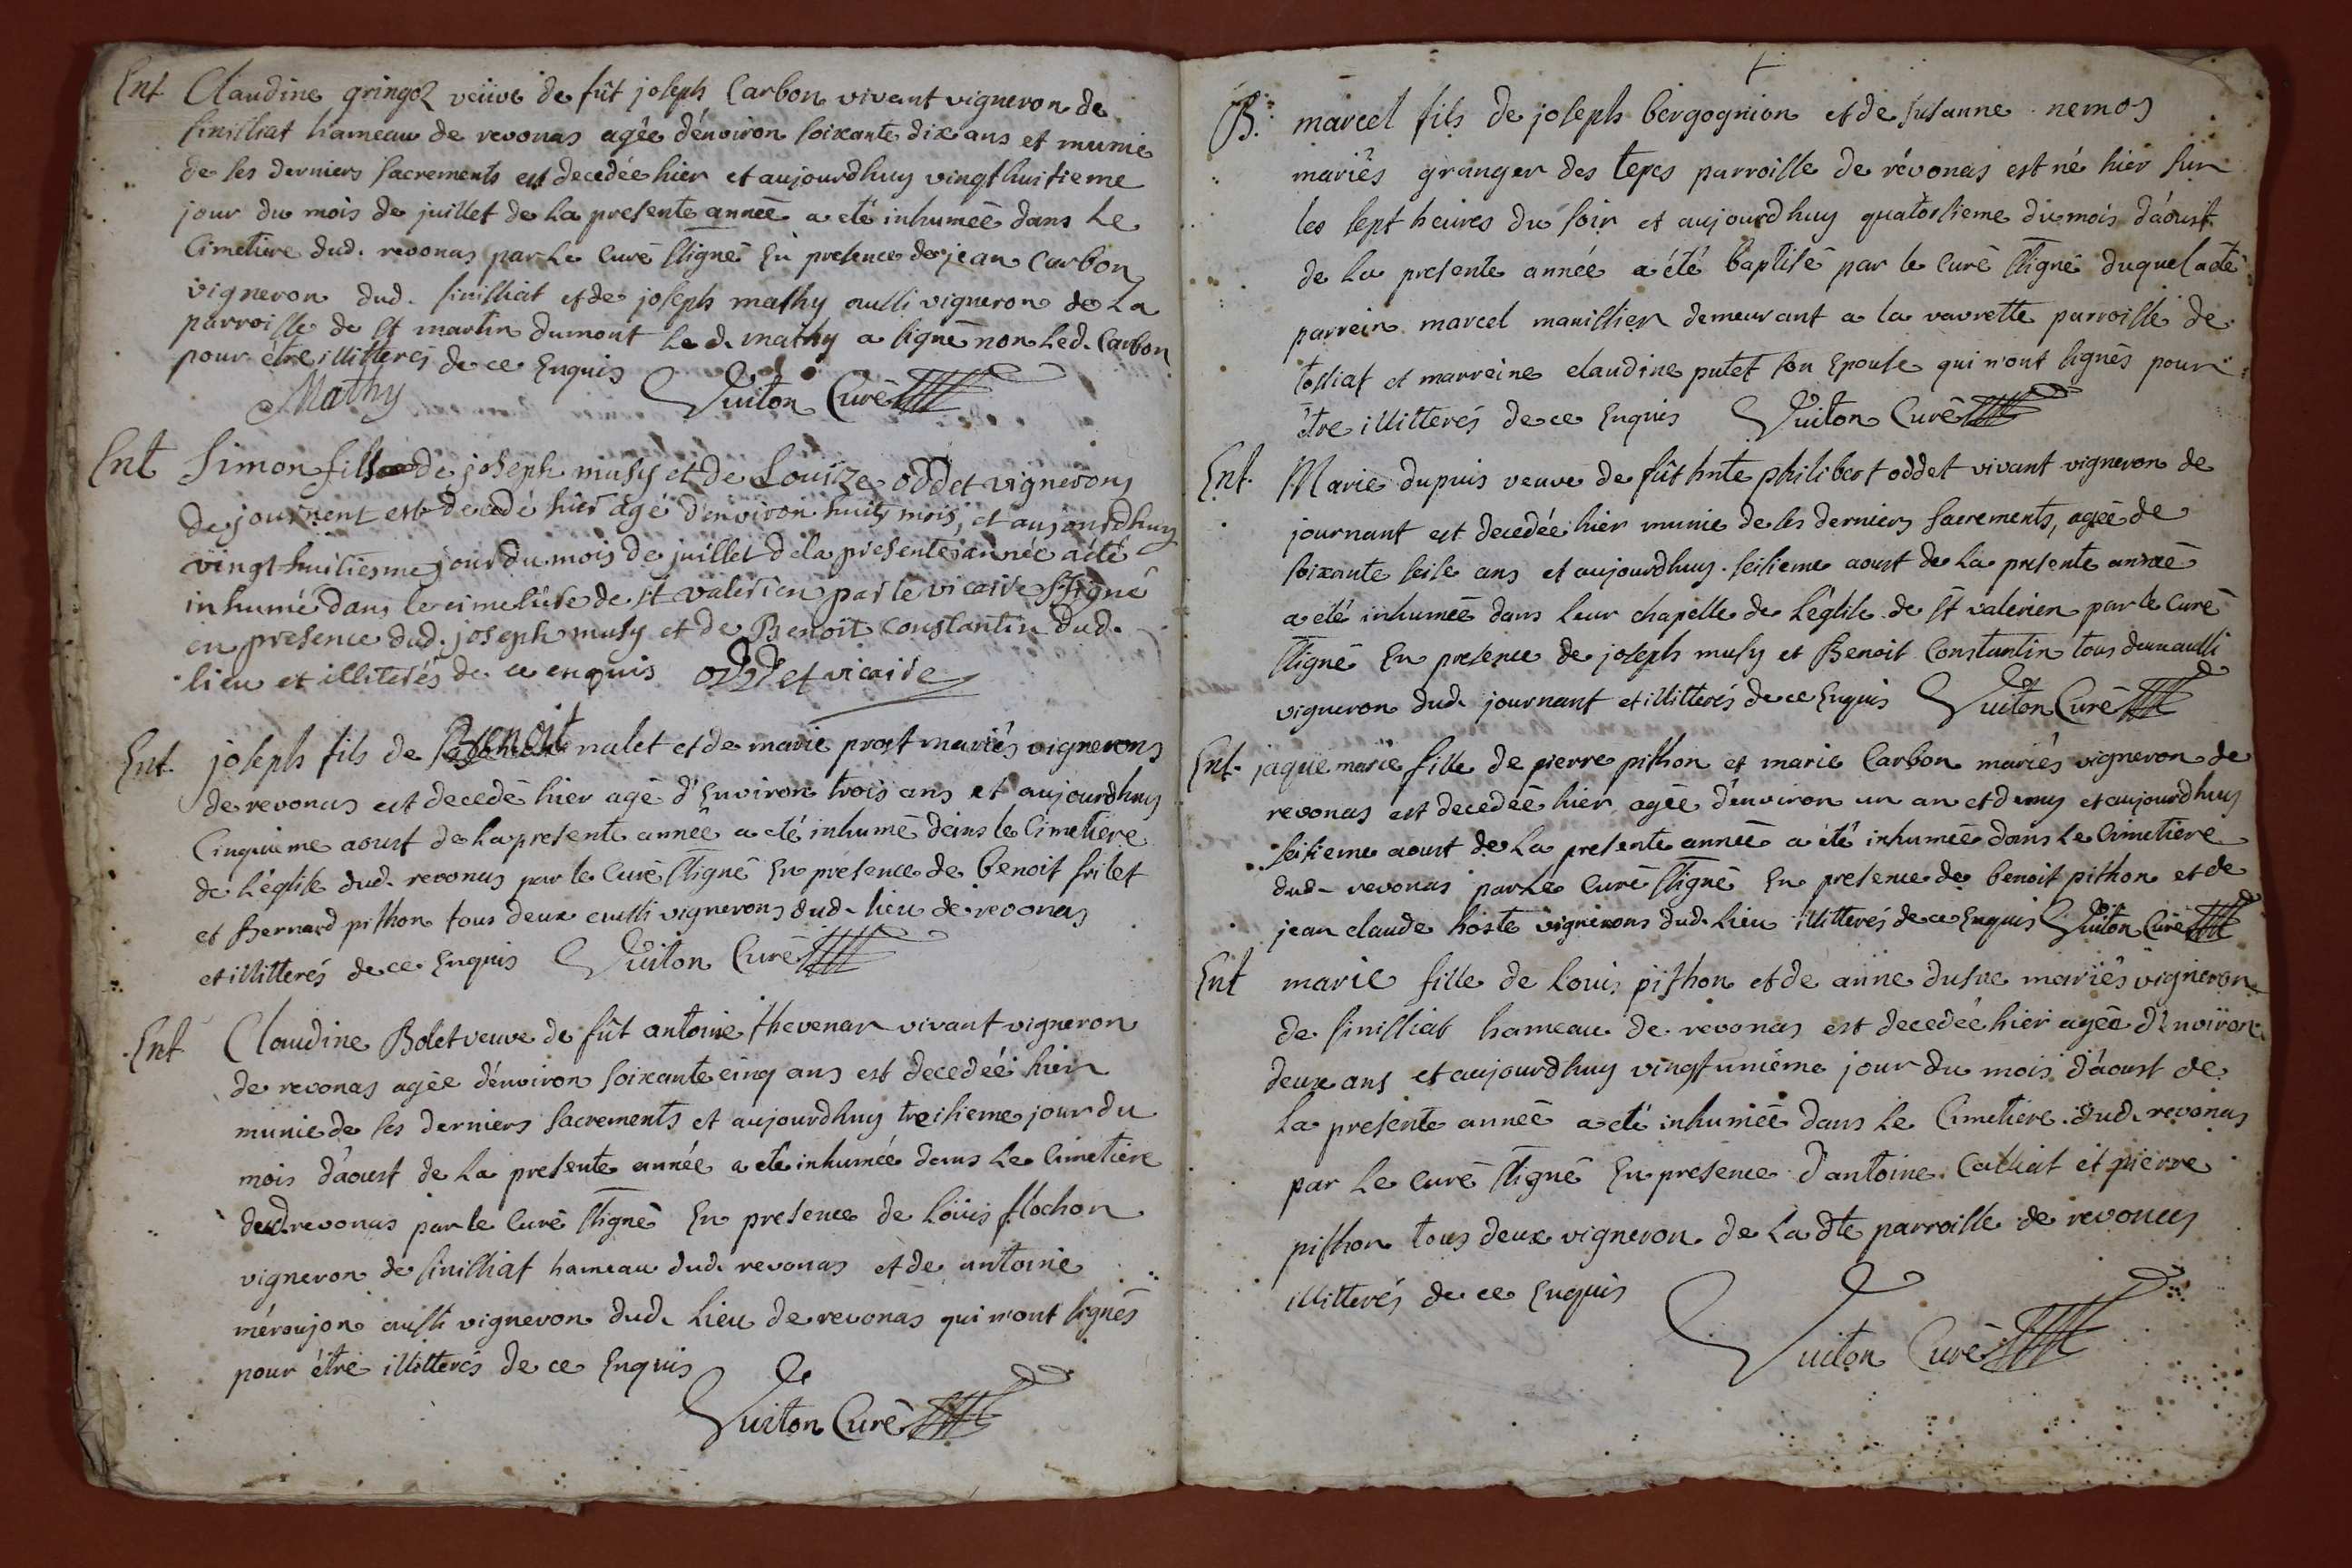 Ent Claudine gringoz veüve de fût joseph Carbon vivant vigneron de
sinissiat hameau de revonas agée d'environ soixante dix ans et munie
de ses derniers sacrements est decedée hier et aujourdhuy vingthuitieme
jour du mois de juillet de la presente année a eté inhumée dans le
Cimetiere dud. revonas par le Curé ssigné En presence de jean Carbon
vigneron dud. sinissiat et de joseph mathy aussi vigneron de la
parroisse de st martin dumont led. mathy a signé non led. Carbon
pour être illitterés de ce Enquis
Mathy Vuiton Curé
Ent Simon fils de joseph musy et de Louize oddet vignerons
de journent est decedé hier agé d'environ huits mois, et aujourdhuy
vingt huitiesme jour du mois de juillet de la presente année a été
inhumé dans le cimetiere de st valerien par le vicaire ssigné
en presence dud. joseph musy et de Benoit constantin dud.
lieu et illiterés de ce enquis oddet vicaire
Ent joseph fils de Benoit nalet et de marie prost mariés vignerons
de revonas est decedé hier agé d'Environ trois ans et aujourdhuy
Cinquieme aoust de la presente année a eté inhumé dans le Cimetiere
de l'église dud. revonas par le Curé ssigné En presence de benoit frilet
et Bernard pithon tous deux aussi vignerons dud. lieu de revonas
et illitterés de ce Enquis Vuiton Curé
Ent Claudine Bolet veuve de fût antoine thevenar vivant vigneron
de revonas agée d'environ soixante cinq ans est decedéé hier
munie de ses derniers sacrements et aujourdhuy treisieme jour du
mois d'aoust de la presente année a eté inhumée dans le Cimetiere
dud. revonas par le Curé ssigné En presence de Loüis flochon
vigneron de sinissiat hameau dud. revonas et de antoine
méroujon aussi vigneron dud. lieu de revonas qui n'ont signés
pour être illitterés de ce Enquis
Vuiton Curé
B. marcel fils de joseph bergognion et de susanne nemos
mariés granger des tepes parroisse de révonas est né hier sur
les sept heures du soir et aujourdhuy quatorsieme du mois d'aoust
de la presente année a été baptisé par le Curé ssigné duquel a eté
parrein marcel manissier demeurant a la vavrette parroisse de
tossiat et marreine claudine putet son Epouse qui n'ont signés pour
être illitterés de ce Enquis Vuiton Curé
Ent. Marie dupuis veuve de fût hnte philibert oddet vivant vigneron de
journant est decedée hier munie de ses derniers sacrements, agée de
soixante seise ans et aujourdhuy seisieme aoust de la presente année
a eté inhumée dans leur chapelle de l'église de st valerien par le Curé
ssigné En presence de joseph musy et Benoit Constantin tous deux aussi
vigneron dud. journant et illitterés de ce Enquis Vuiton Curé
Ent. jaque marie fille de pierre pithon et marie Carbon mariés vigneron de
revonas est decedéé hier agée d'environ un an et demy et aujourdhuy
seisieme aoust de la presente année a eté inhumée dans le Cimetiere
dud. revonas par le Curé ssigné En presence de benoit pithon et de
jean claude hoste vignerons dud. lieu illitterés de ce Enquis Vuiton Curé
Ent marie fille de Louis pithon et de anne dufue mariés vigneron
de sinissiat hameau de revonas est decedée hier agée d'Environ
deux ans et aujourdhuy vingtuniéme jour du mois d'aoust de
la presente année a eté inhumée dans le Cimetiere dud. revonas
par le Curé ssigné En presence d'antoine Calliat et pierre
pithon tous deux vigneron de la dte parroisse de revonas
illitterés de ce Enquis
Vuiton Curé